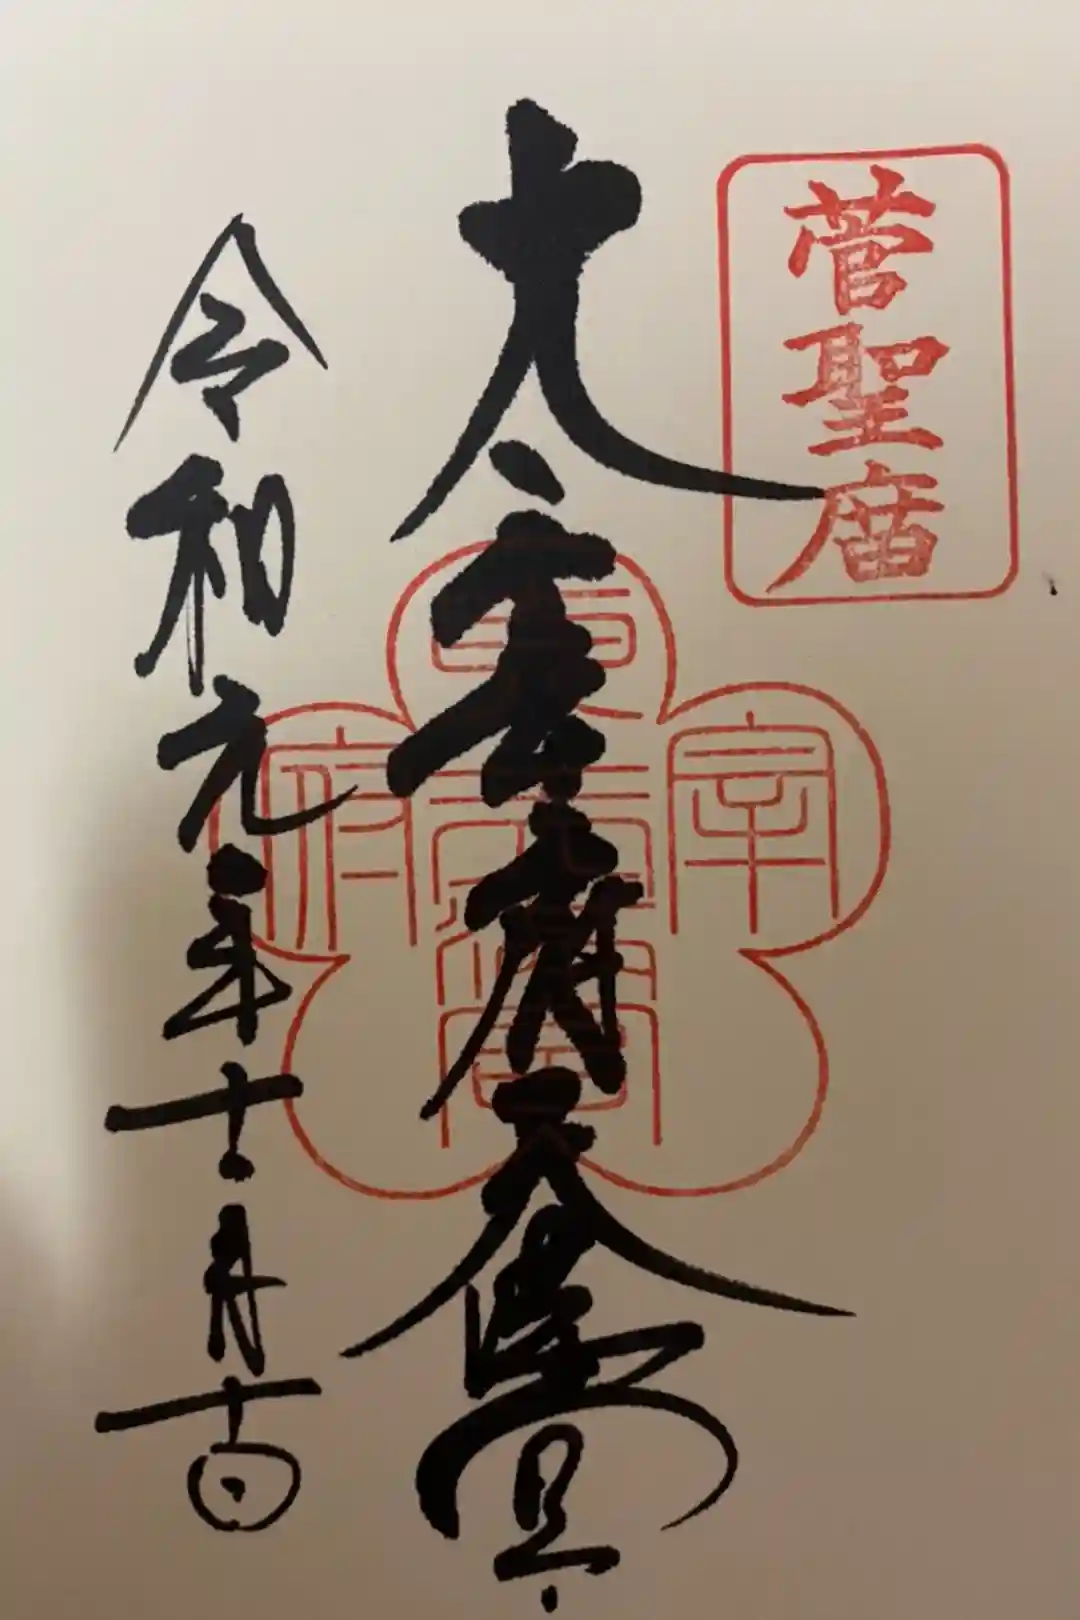 菅聖庿
太宰府天満宮
令和元年十月十日
宰府
天満宮